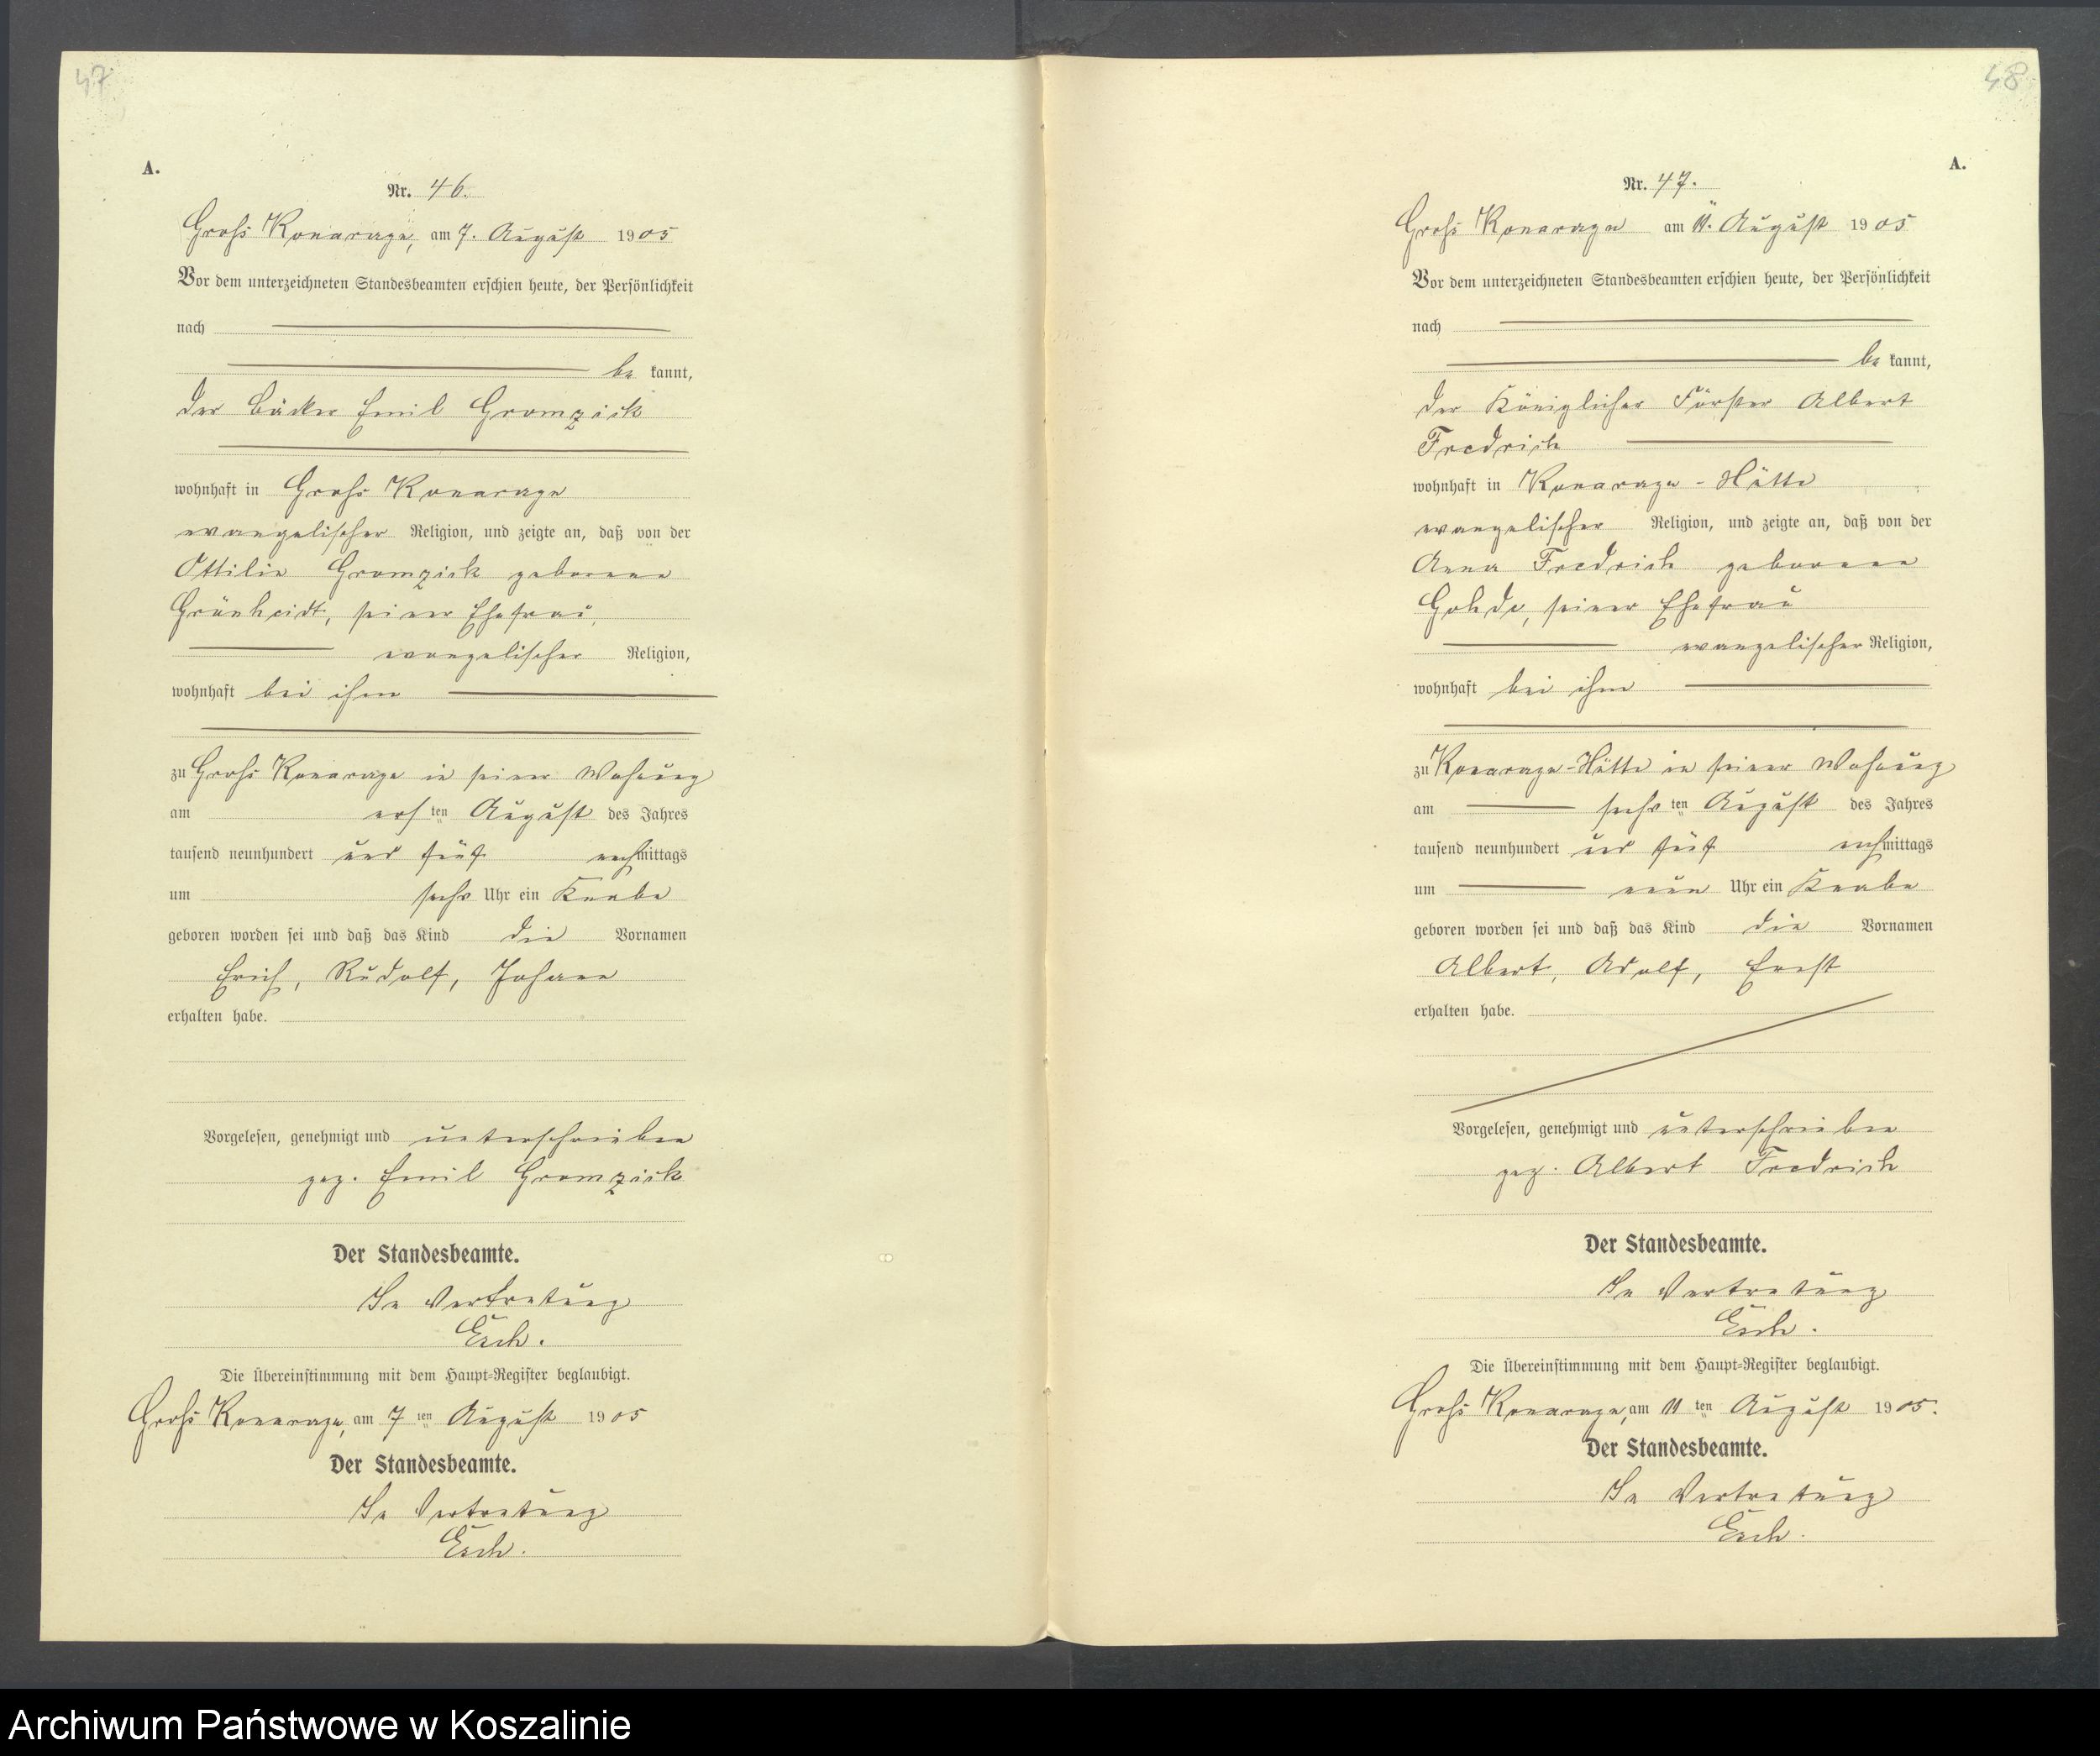 47
A.
Nr. 46.
Groß Konarczyn, am 7. August 1905
Vor dem unterzeichneten Standesbeamten erschien heute, der Persönlichkeit
nach
be kannt,
der Bäcker Emil Gromzick
wohnhaft in Groß Konarczyn
evangelischer Religion, und zeigte an, daß von der
Ottilie Gromzick geborene
Grünheidt, seiner Ehefrau,
evangelischer Religion,
wohnhaft bei ihm
zu Groß Konarczyn in seiner Wohnung
am ersten August des Jahres
tausend neunhundert und fünf nachmittags
um sechs Uhr ein Knabe
geboren worden sei und daß das Kind die Vornamen
Erich, Rudolf, Johann
erhalten habe.
Vorgelesen, genehmigt und unterschrieben
gez. Emil Gromzick
Der Standesbeamte.
In Vertretung
Die Übereinstimmung mit dem Haupt-Register beglaubigt.
Groß Konarczyn, am 7 ten August 1905
Der Standesbeamte.
In Vertretung
48
A.
Nr. 47.
Groß Konarczyn am 11. August 1905
Vor dem unterzeichneten Standesbeamten erschien heute, der Persönlichkeit
nach
be kannt,
der Königlicher Förster Albert
Fredrich
wohnhaft in Konarczyn-Hütte
evangelischer Religion, und zeigte an, daß von der
Anna Fredrich geborene
Gohde, seiner Ehefrau
evangelischer Religion,
wohnhaft bei ihm
zu Konarczyn-Hütte in seiner Wohnung
am sechsten August des Jahres
tausend neunhundert und fünf nachmittags
um neun Uhr ein Knabe
geboren worden sei und daß das Kind die Vornamen
Albert, Adolf, Ernst
erhalten habe.
Vorgelesen, genehmigt und unterschrieben
gez. Albert Fredrich
Der Standesbeamte.
In Vertretung
Die Übereinstimmung mit dem Haupt-Register beglaubigt.
Groß Konarczyn, am 11 ten August 1905.
Der Standesbeamte.
In Vertretung
Archiwum Państwowe w Koszalinie